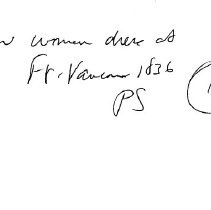 women dress at
Ft. Vancouver 1836
PS